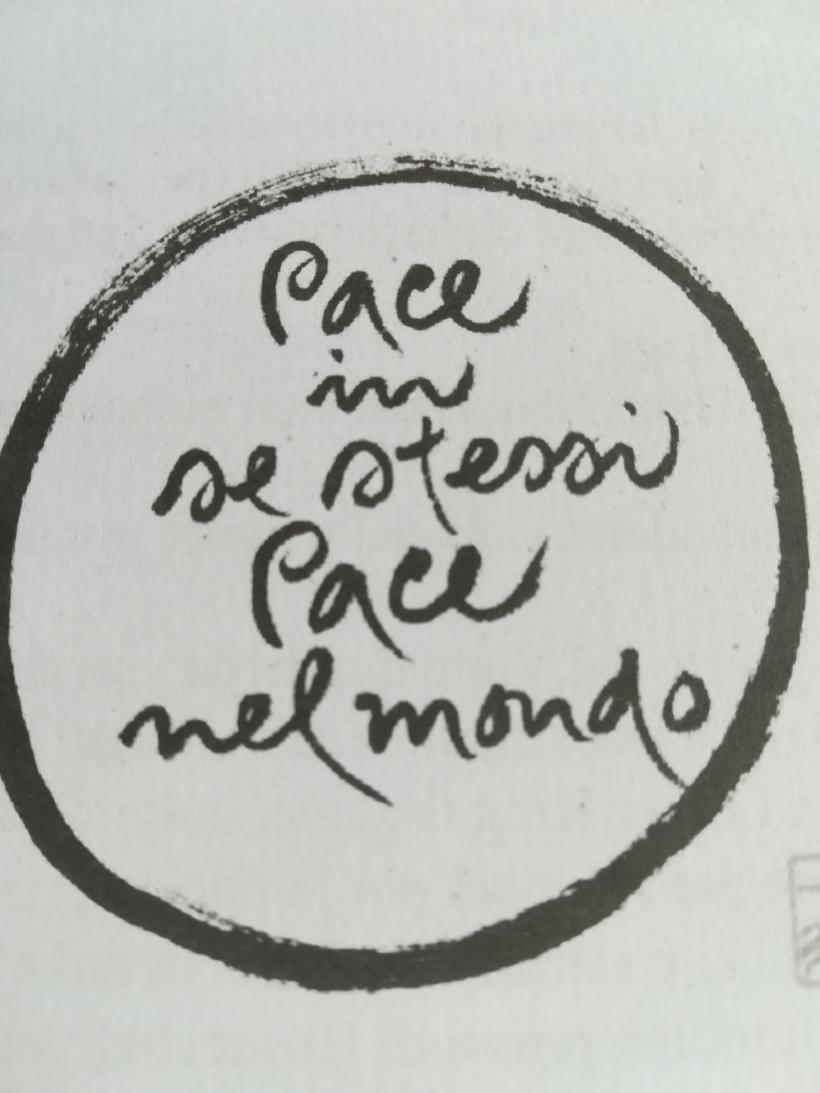 Pace
in
se stessi
Pace
nel mondo